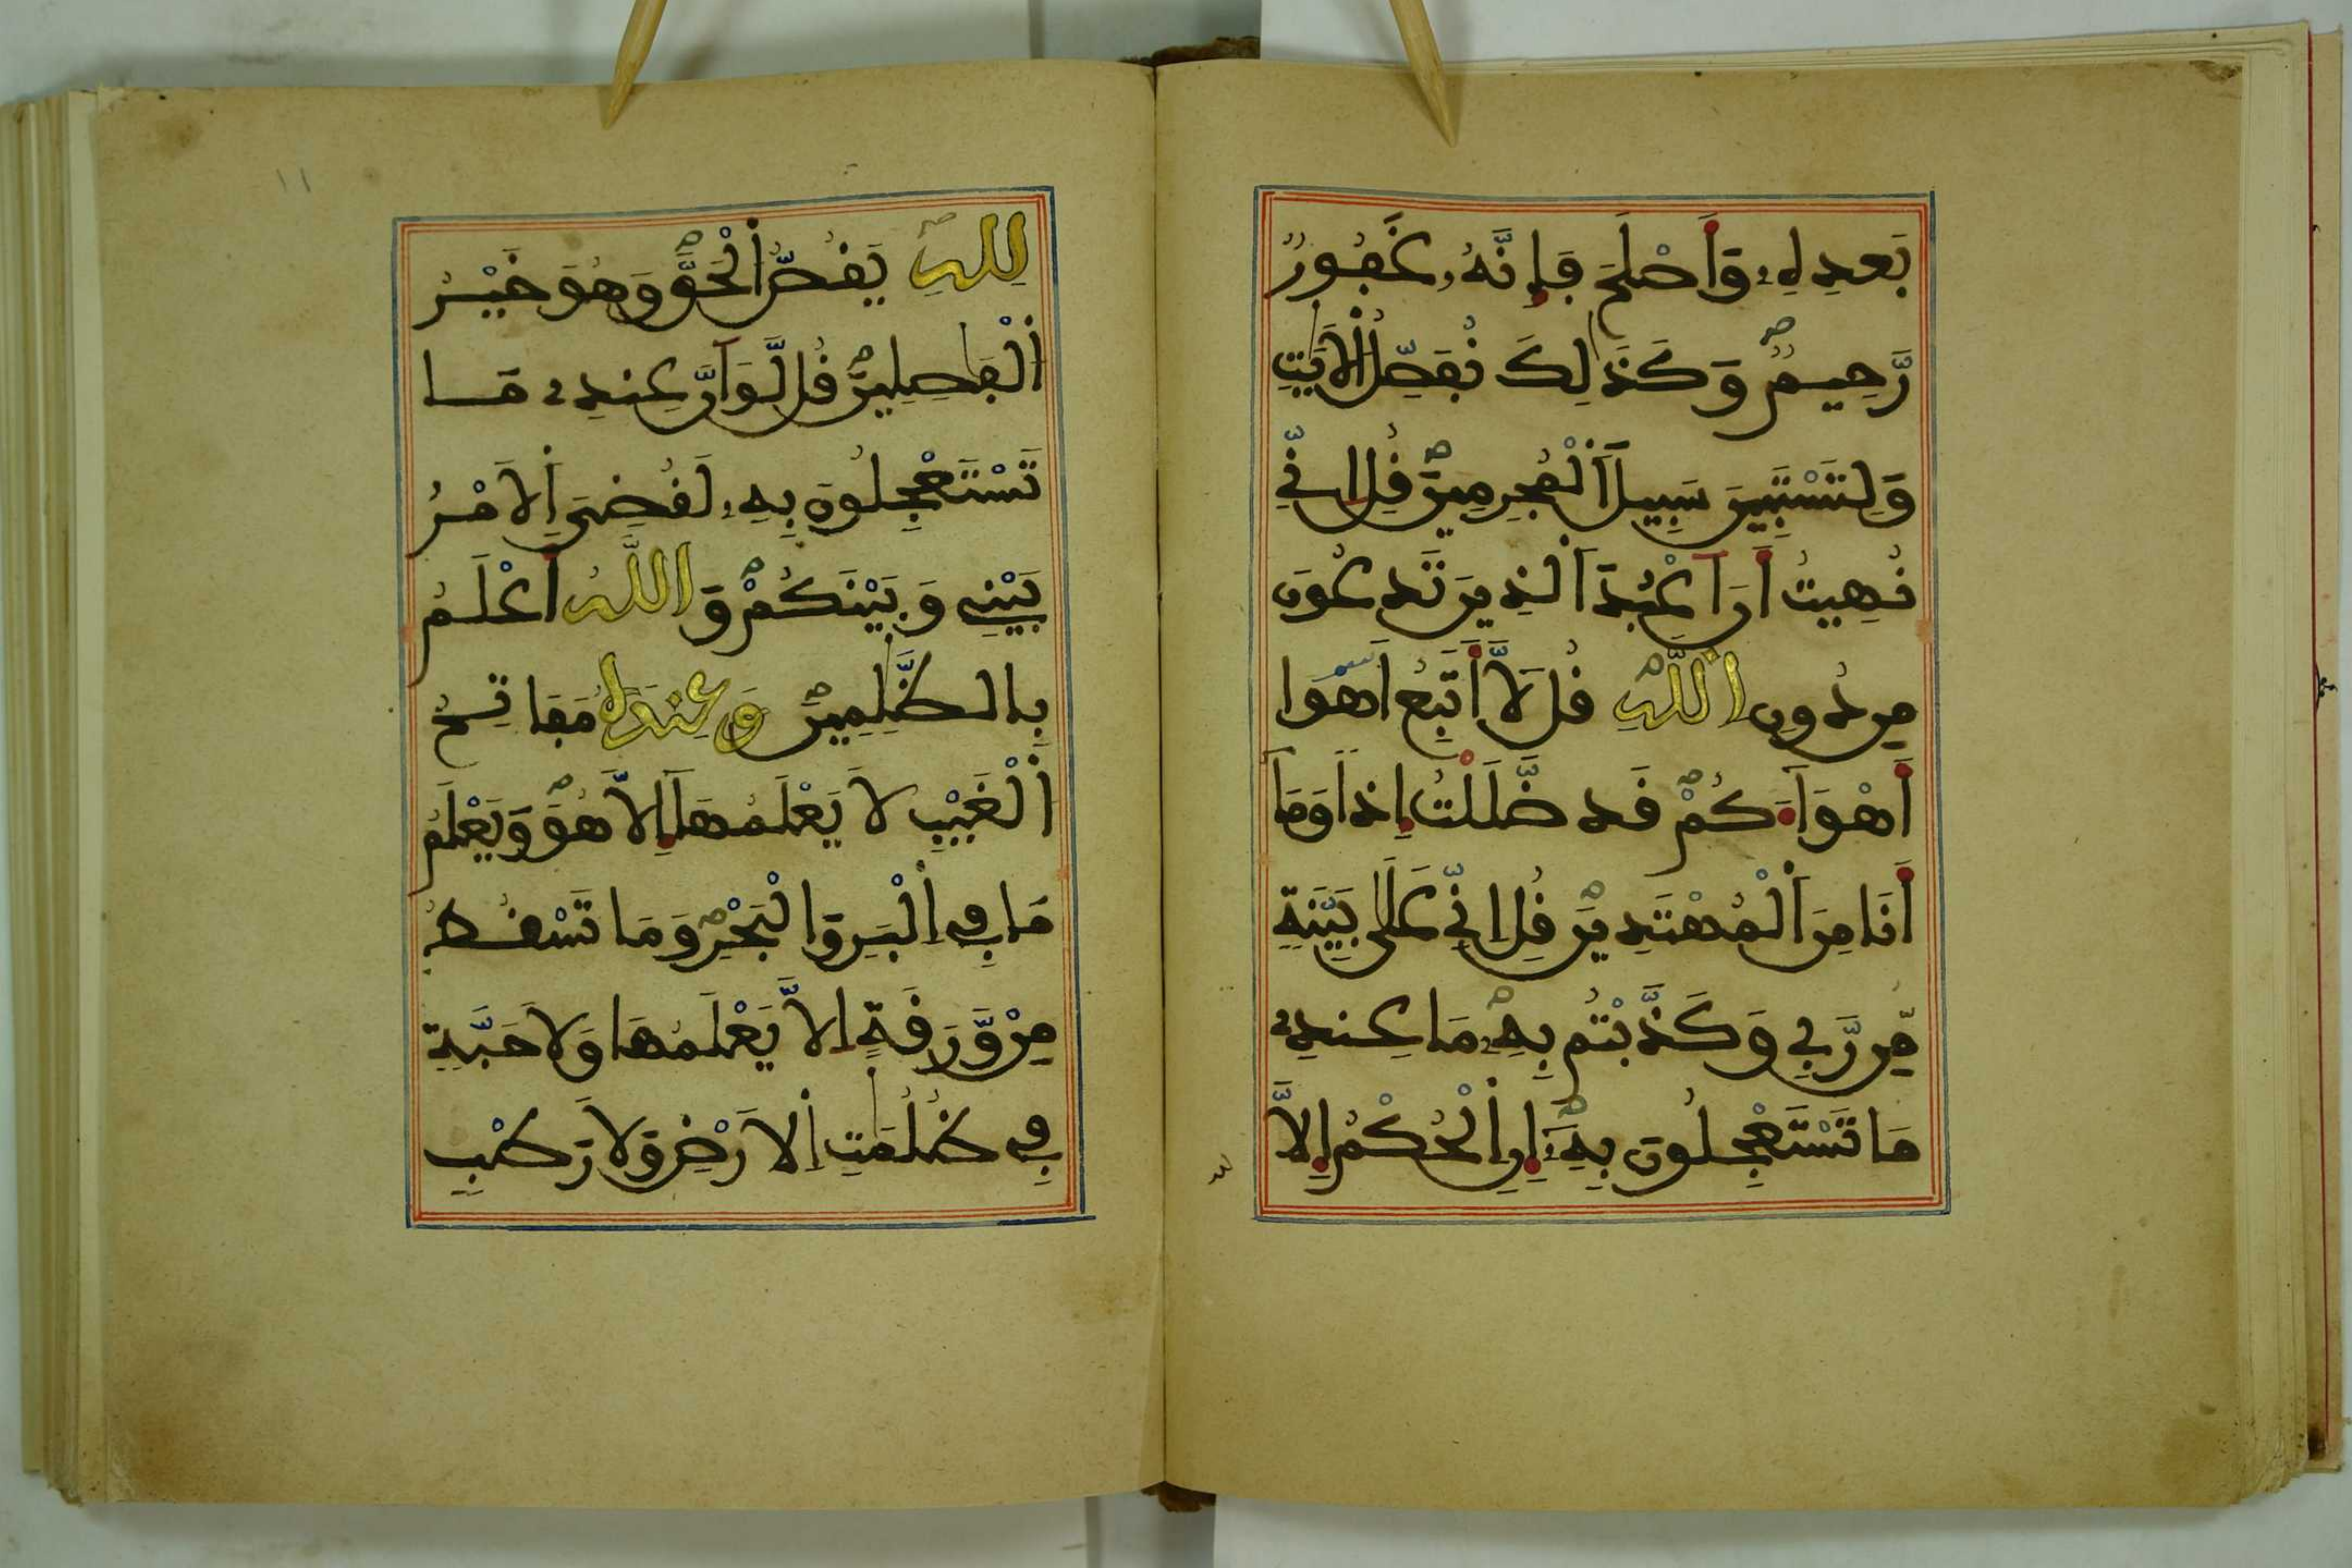 بَعدِهِۦ وَأَصْلَحَ فَإِنَّهُۥ غَفُورٌ
رَّحِيمٌ وَكَذَٰلِكَ نُفَصِّلُ اُ۬لَايَٰتِ
وَلِتَسْتَبِينَ سَبِيلَ اَ۬لْمُجْرِمِينَ قُلِ انِّے
نُهِيتُ أَنَ اَعْبُدَ اَ۬لذِينَ تَدعُونَ
مِن دُونِ اِ۬للَّهِ قُل لَّا أَتَّبِعُ أَهْوَا
أَهْوَآءَكُمْ قَد ضَّلَلْتُ إِذاً وَمَا
أَنَا مِنَ اَ۬لْمُهْتَدِينَ قُلِ انِّے عَلَىٰ بَيِّنَةٖ
مِّن رَّبِّے وَكَذَّبْتُم بِهِۦ مَا عِندِے
مَا تَسْتَعْجِلُونَ بِهِۦٓ إِنِ اِ۬لْحُكْمُ إِلَّا
لِلهِ يَقُصُّ اُ۬لْحَقَّ وَهُوَ خَيْرُ
اُ۬لْفَٰصِلِينَ قُل لَّوَ اَنَّ عِندِے مَا
تَسْتَعْجِلُونَ بِهِۦ لَقُضِيَ اَ۬لَامْرُ
بَيْنِے وَبَيْنَكُمْ وَاللَّهُ أَعْلَمُ
بِالظَّٰلِمِينَ وَعِندَهُ مَفَاتِحُ
اُ۬لْغَيْبِ لَا يَعْلَمُهَا إِلَّا هُوَ وَيَعْلَمُ
مَا فِے اِ۬لْبَرِّ وَالْبَحْرِ وَمَا تَسْقُطُ
مِنْ وَّرَقَةٍ اِلَّا يَعْلَمُهَا وَلَا حَبَّةٖ
فِے ظُلُمَٰتِ اِ۬لَارْضِ وَلَا رَطْبٖ